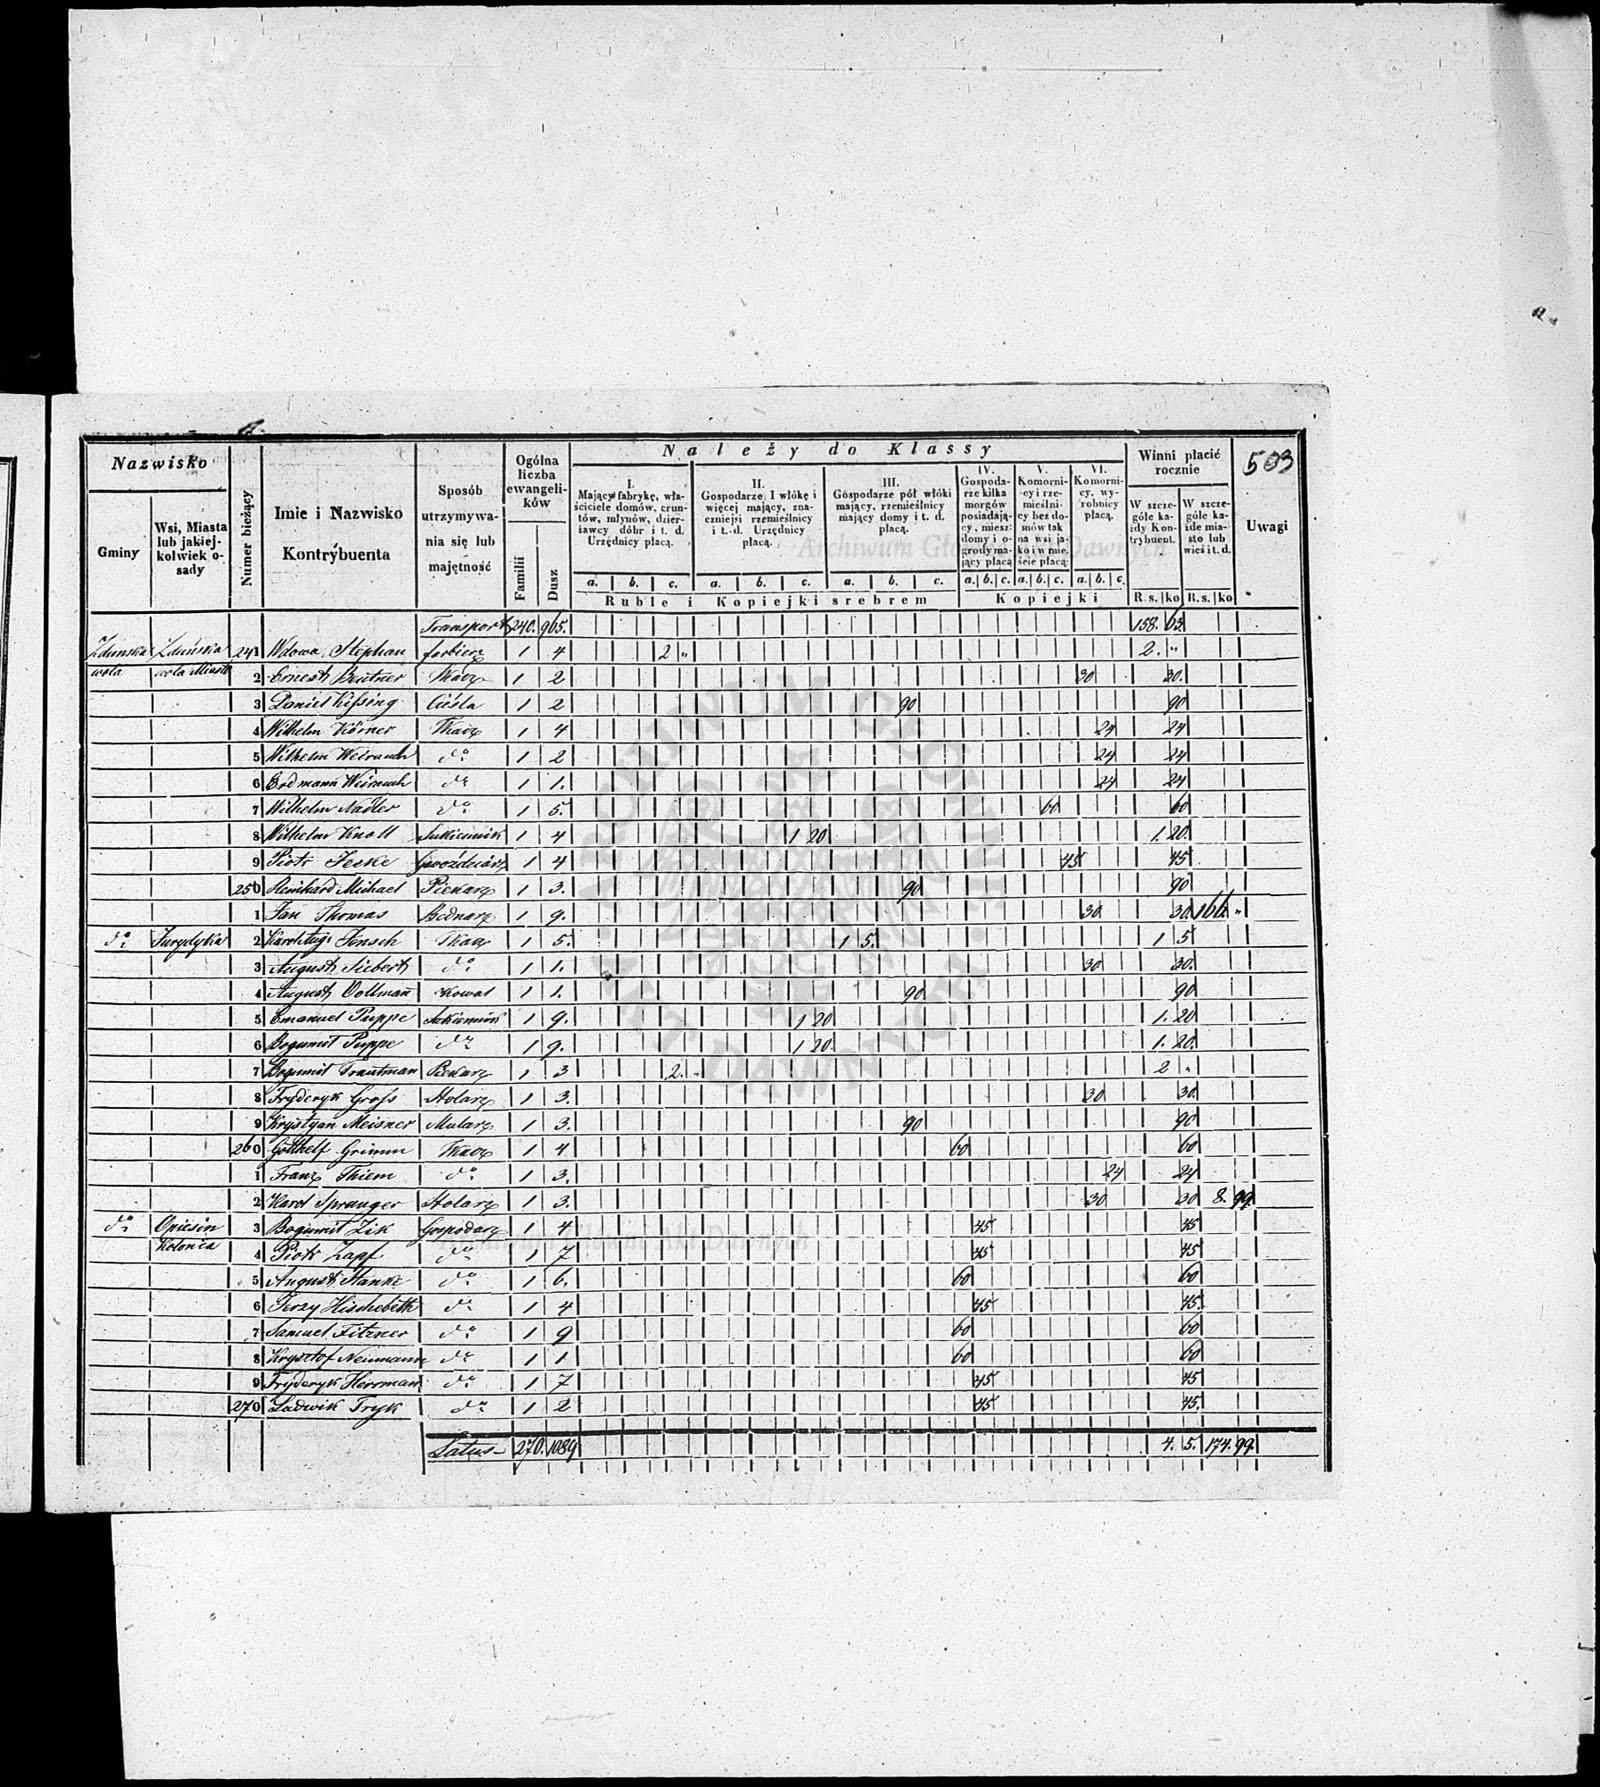 503
Nazwisko
Gminy
Wsi, Miasta lub jakiejkolwiek osady
Numer bieżący
Imie i Nazwisko Kontrybuenta
Sposób utrzymywania się lub majętność
Ogólna liczba ewangelików
Familii
Dusz
Należy do Klassy
I. Mający fabrykę, właściciele domów, gruntów, młynów, dzierżawcy dóbr i t. d. Urzędnicy płacą.
II. Gospodarze I włókę i więcej mający, znaczniejsi rzemieślnicy i t. d. Urzędnicy płacą.
III. Gospodarze pół włóki mający, rzemieślnicy mający domy i t. d. płacą.
IV. Gospodarze kilka morgów posiadający, miesz: domy i ogrody mający płacą
V. Komornicy i rzemieślnicy bez domów tak na wsi jako i w mieście płacą:
VI. Komornicy, wyrobnicy płacą.
a. b. c. a. b. c. a. b. c. a. b. c. a. b. c. a. b. c.
Ruble i Kopiejki srebrem
Kopiejki
Winni płacić rocznie
W szczególe każdy Kontrybuent.
W szczególe każde miasto lub wieś i t. d.
R.s. ko R.s. ko
Uwagi
Transport 240. 965. 158. 63.
Zdunska wola Zduńska wola Miasto 241 Wdowa Stephan farbierz 1 4 2 " 2. "
2 Ernest Beutner Tkacz 1 2 30 30.
3 Daniel Kissing Cieśla 1 2 90 90
4 Wilhelm Körner Tkacz 1 4 24 24
5 Wilhelm Weirauch do 1 2 24 24
6 Erdmann Weirauch do 1 1. 24 24
7 Wilhelm Nadler do 1 5. 60 60
8 Wilhelm Knoll Sukiennik 1 4 1 20 1. 20.
9 Piotr Jeske Gwoździarz 1 4 45 45
250 Reinhard Michael Piekarz 1 3. 90 90
1 Jan Thomas Bednarz 1 9. 30 30 166. "
do Jurydyka 2 Jensch Tkacz 1 5. 1 5. 1 5
3 August Siebert do 1 1. 30 30.
4 August Vollman Kowal 1 1. 90 90
5 Emanuel Puppe Sukiennik 1 9. 1 20 1. 20
6 Bogumił Puppe do 1 9. 1 20. 1. 20.
7 Bogumił Trautman Piekarz 1 3 2. " 2 "
8 Fryderyk Gross Stolarz 1 3. 30 30
9 Krystyan Meisner Mularz 1 3. 90 90
260 Gotthelf Grimm Tkacz 1 4 60 60
1 Franz Thiem do 1 3. 24 24
2 Karol Spranger Stolarz 1 3. 30 30 8. 99
do Opiesin Kolonia 3 Bogumił Zik Gospodarz 1 4 45 45
4 Piotr Zapf do 1 7 45 45
5 August Hanke do 1 6. 60 60
6 Jerzy Hischebeth do 1 4 45 45.
7 Samuel Fitzner do 1 9 60 60
8 Krysztof Neumann do 1 1 60 60
9 Fryderyk Herrman do 1 7 45 45
270 Ludwik Tryk do 1 2 45 45.
Latus 270. 1089 4. 5. 174. 99
Archiwum Główne Akt Dawnych